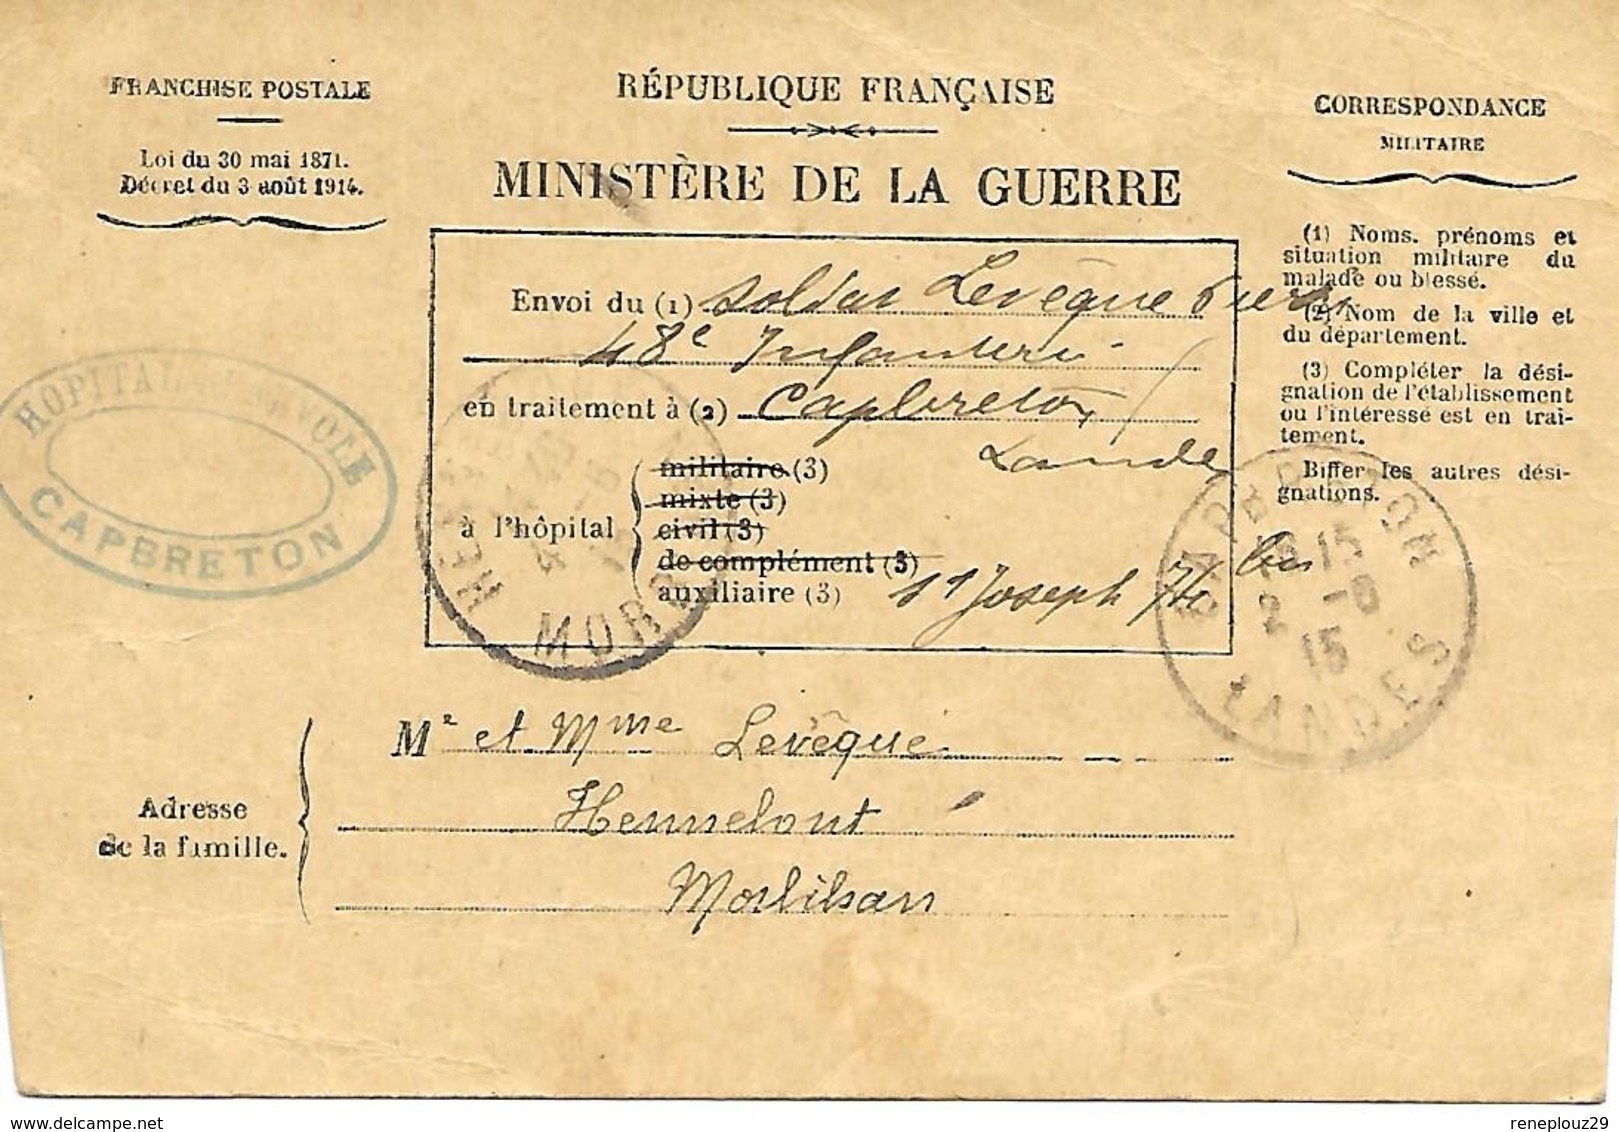 FRANCHISE POSTALE
Loi du 30 mai 1871.
Décret du 3 août 1914.
RÉPUBLIQUE FRANÇAISE
MINISTÈRE DE LA GUERRE
CORRESPONDANCE
MILITAIRE
(1) Noms, prénoms et
situation militaire du
malade ou blessé.
(2) Nom de la ville et
du département.
(3) Compléter la dési-
gnation de l'établissement
ou l'intéressé est en trai-
tement.
Biffer les autres dési-
gnations.
Envoi du (1) soldat Levêque
48e Infanterie
en traitement à (2) Capbreton
Landes
à l'hôpital
militaire (3)
mixte (3)
civil (3)
de complément (3)
auxiliaire (3) St Joseph 74 bis
HOPITAL BENEVOLE
CAPBRETON
MORB
CAPBRETON
15
2 -6
15
LANDES
Adresse
de la famille.
Mr et Mme Levêque
Hennebont
Morbihan
reneplouz29